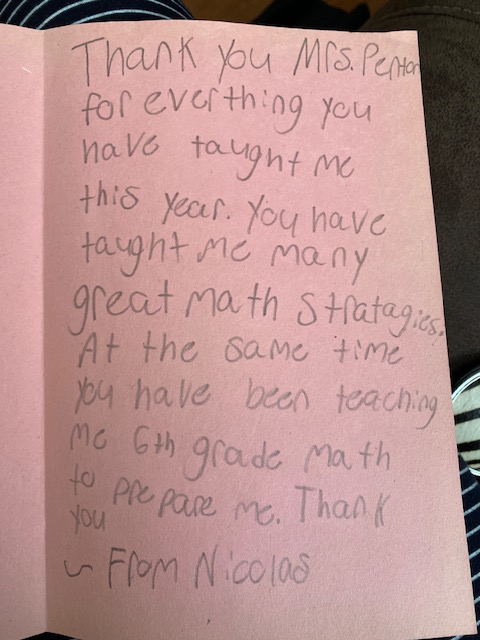 Thank you Mrs. Penton
for everthing you
have taught me
this year. You have
taught me many
great math stratagies.
At the same time
you have been teaching
me 6th grade math
to prepare me. Thank
you
~ From Nicolas